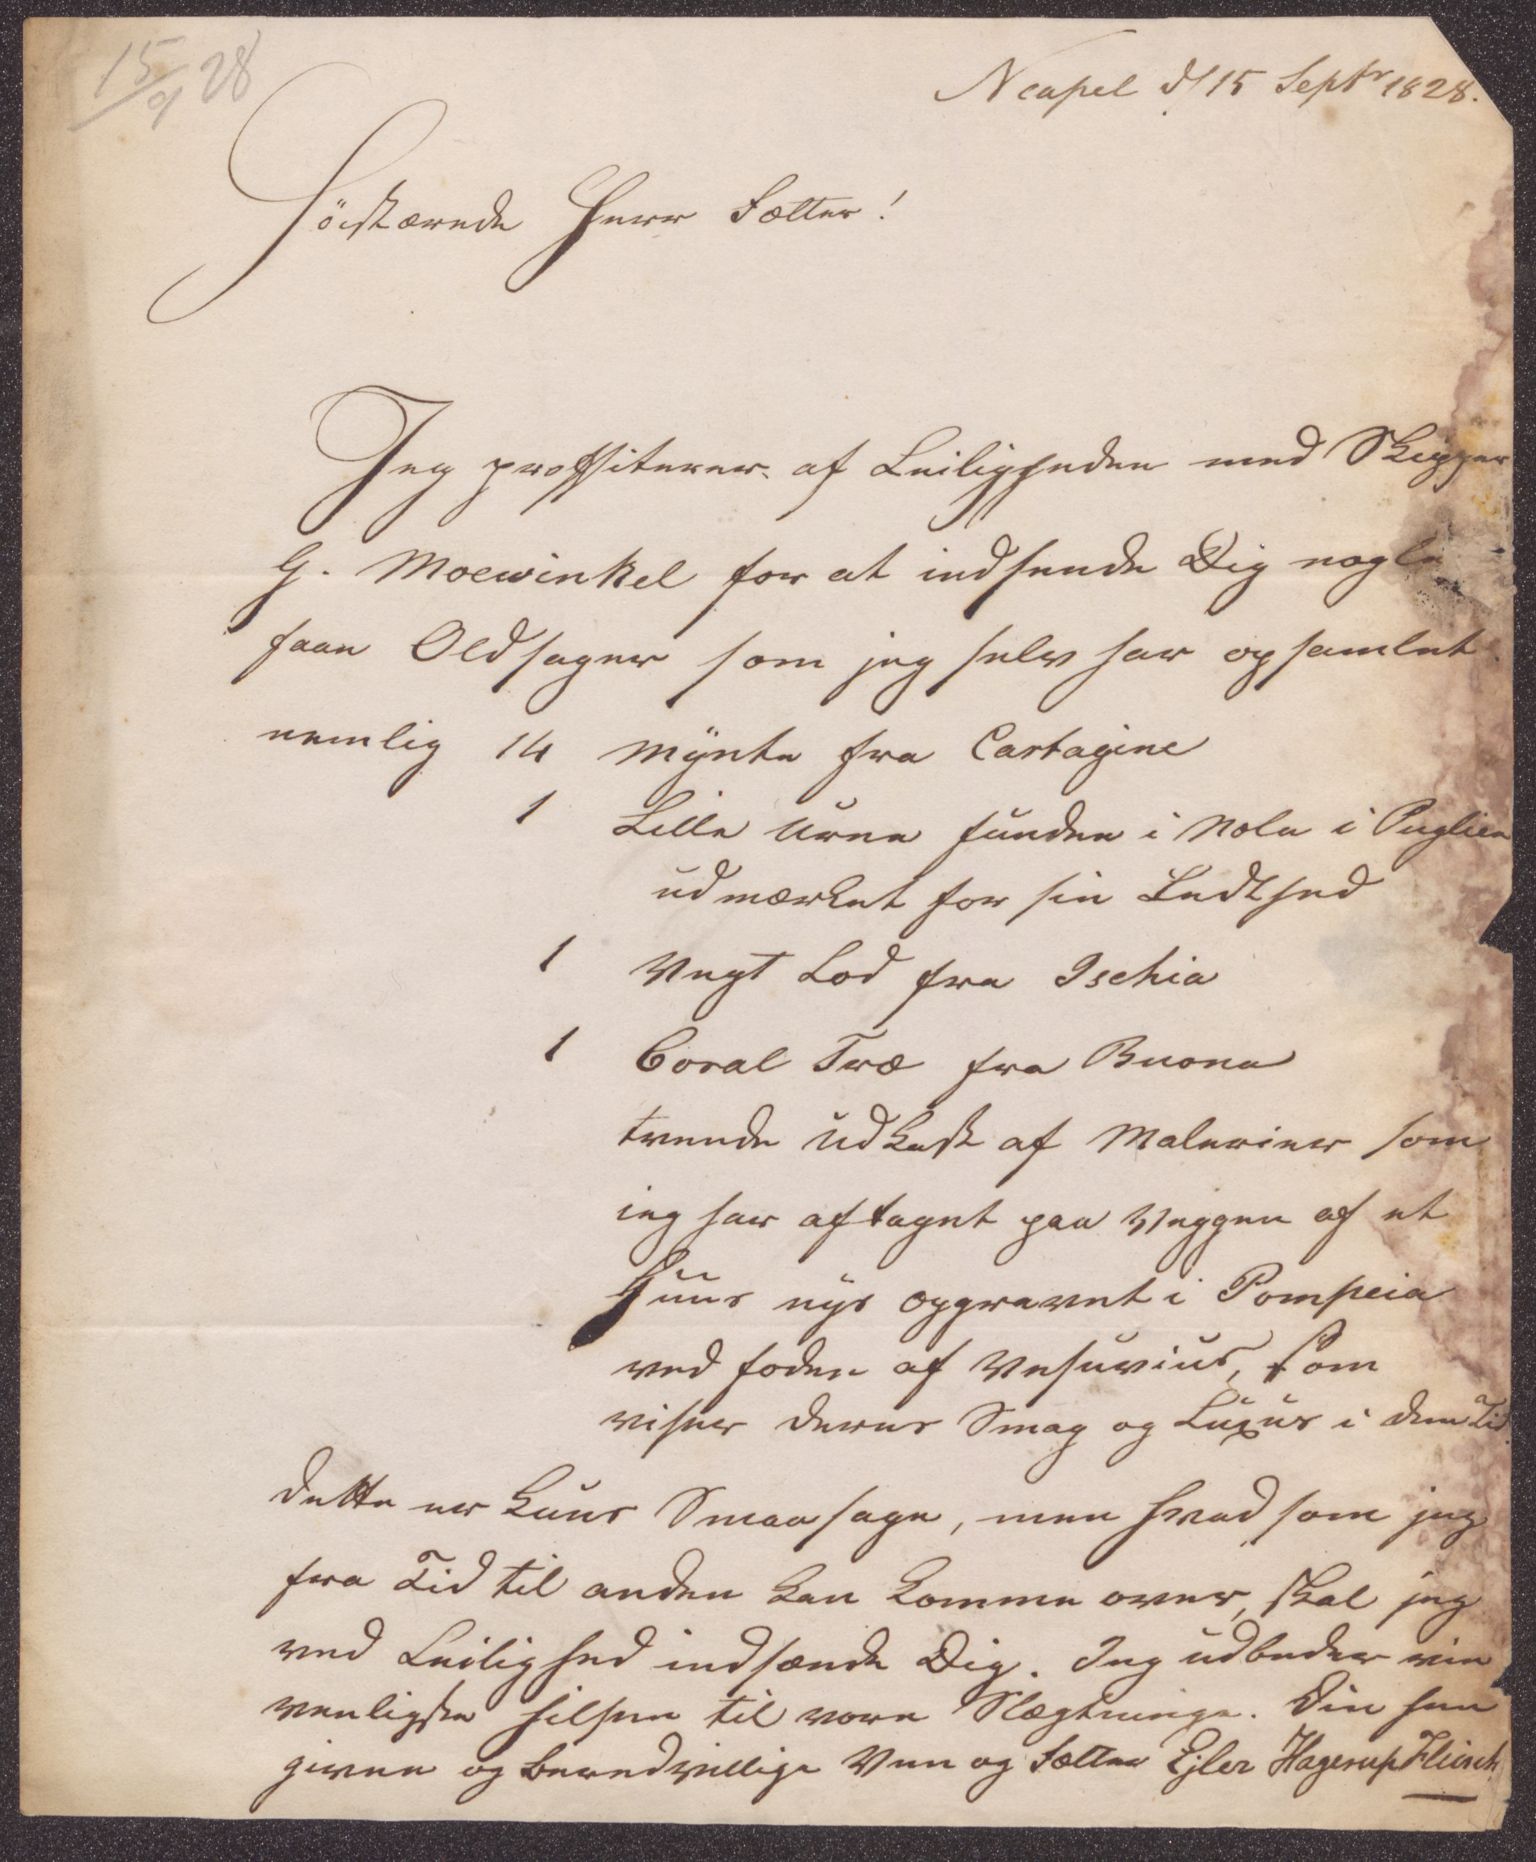 15/9 28
Neapel d/15 Septr 1828.
Höistærede Herr Fætter!
Jeg proffiterer af Leiligheden med Skipper
G. Moewinkel for at indsende Dig nogle
faae Oldsager som jeg selv har opsamlet
nemlig 14 Mÿnte fra Cartagine
1 Lille Urne funden i Nola i Puglien
udmærket for sin Ledthed
1 Vegt Lod fra Ischia
1 Coral Træ fra Buona
trende Udkast af Malerier som
ieg har aftaget paa Veggen af et
Huus nÿs opgravet i Pompeia
ved foden af Vesuvius, som
viser deres Smag og Luxus i dem Tid.
dette er kuns Smaasage, men hvad som jeg
fra Tid til anden kan komme over, skal jeg
ved Leilighed indsænde Dig. Jeg udbeder min
venligste hilsen til vore Slægtninge. Din hen
given og beredvillige Ven og Fætter Ejler Hagerup